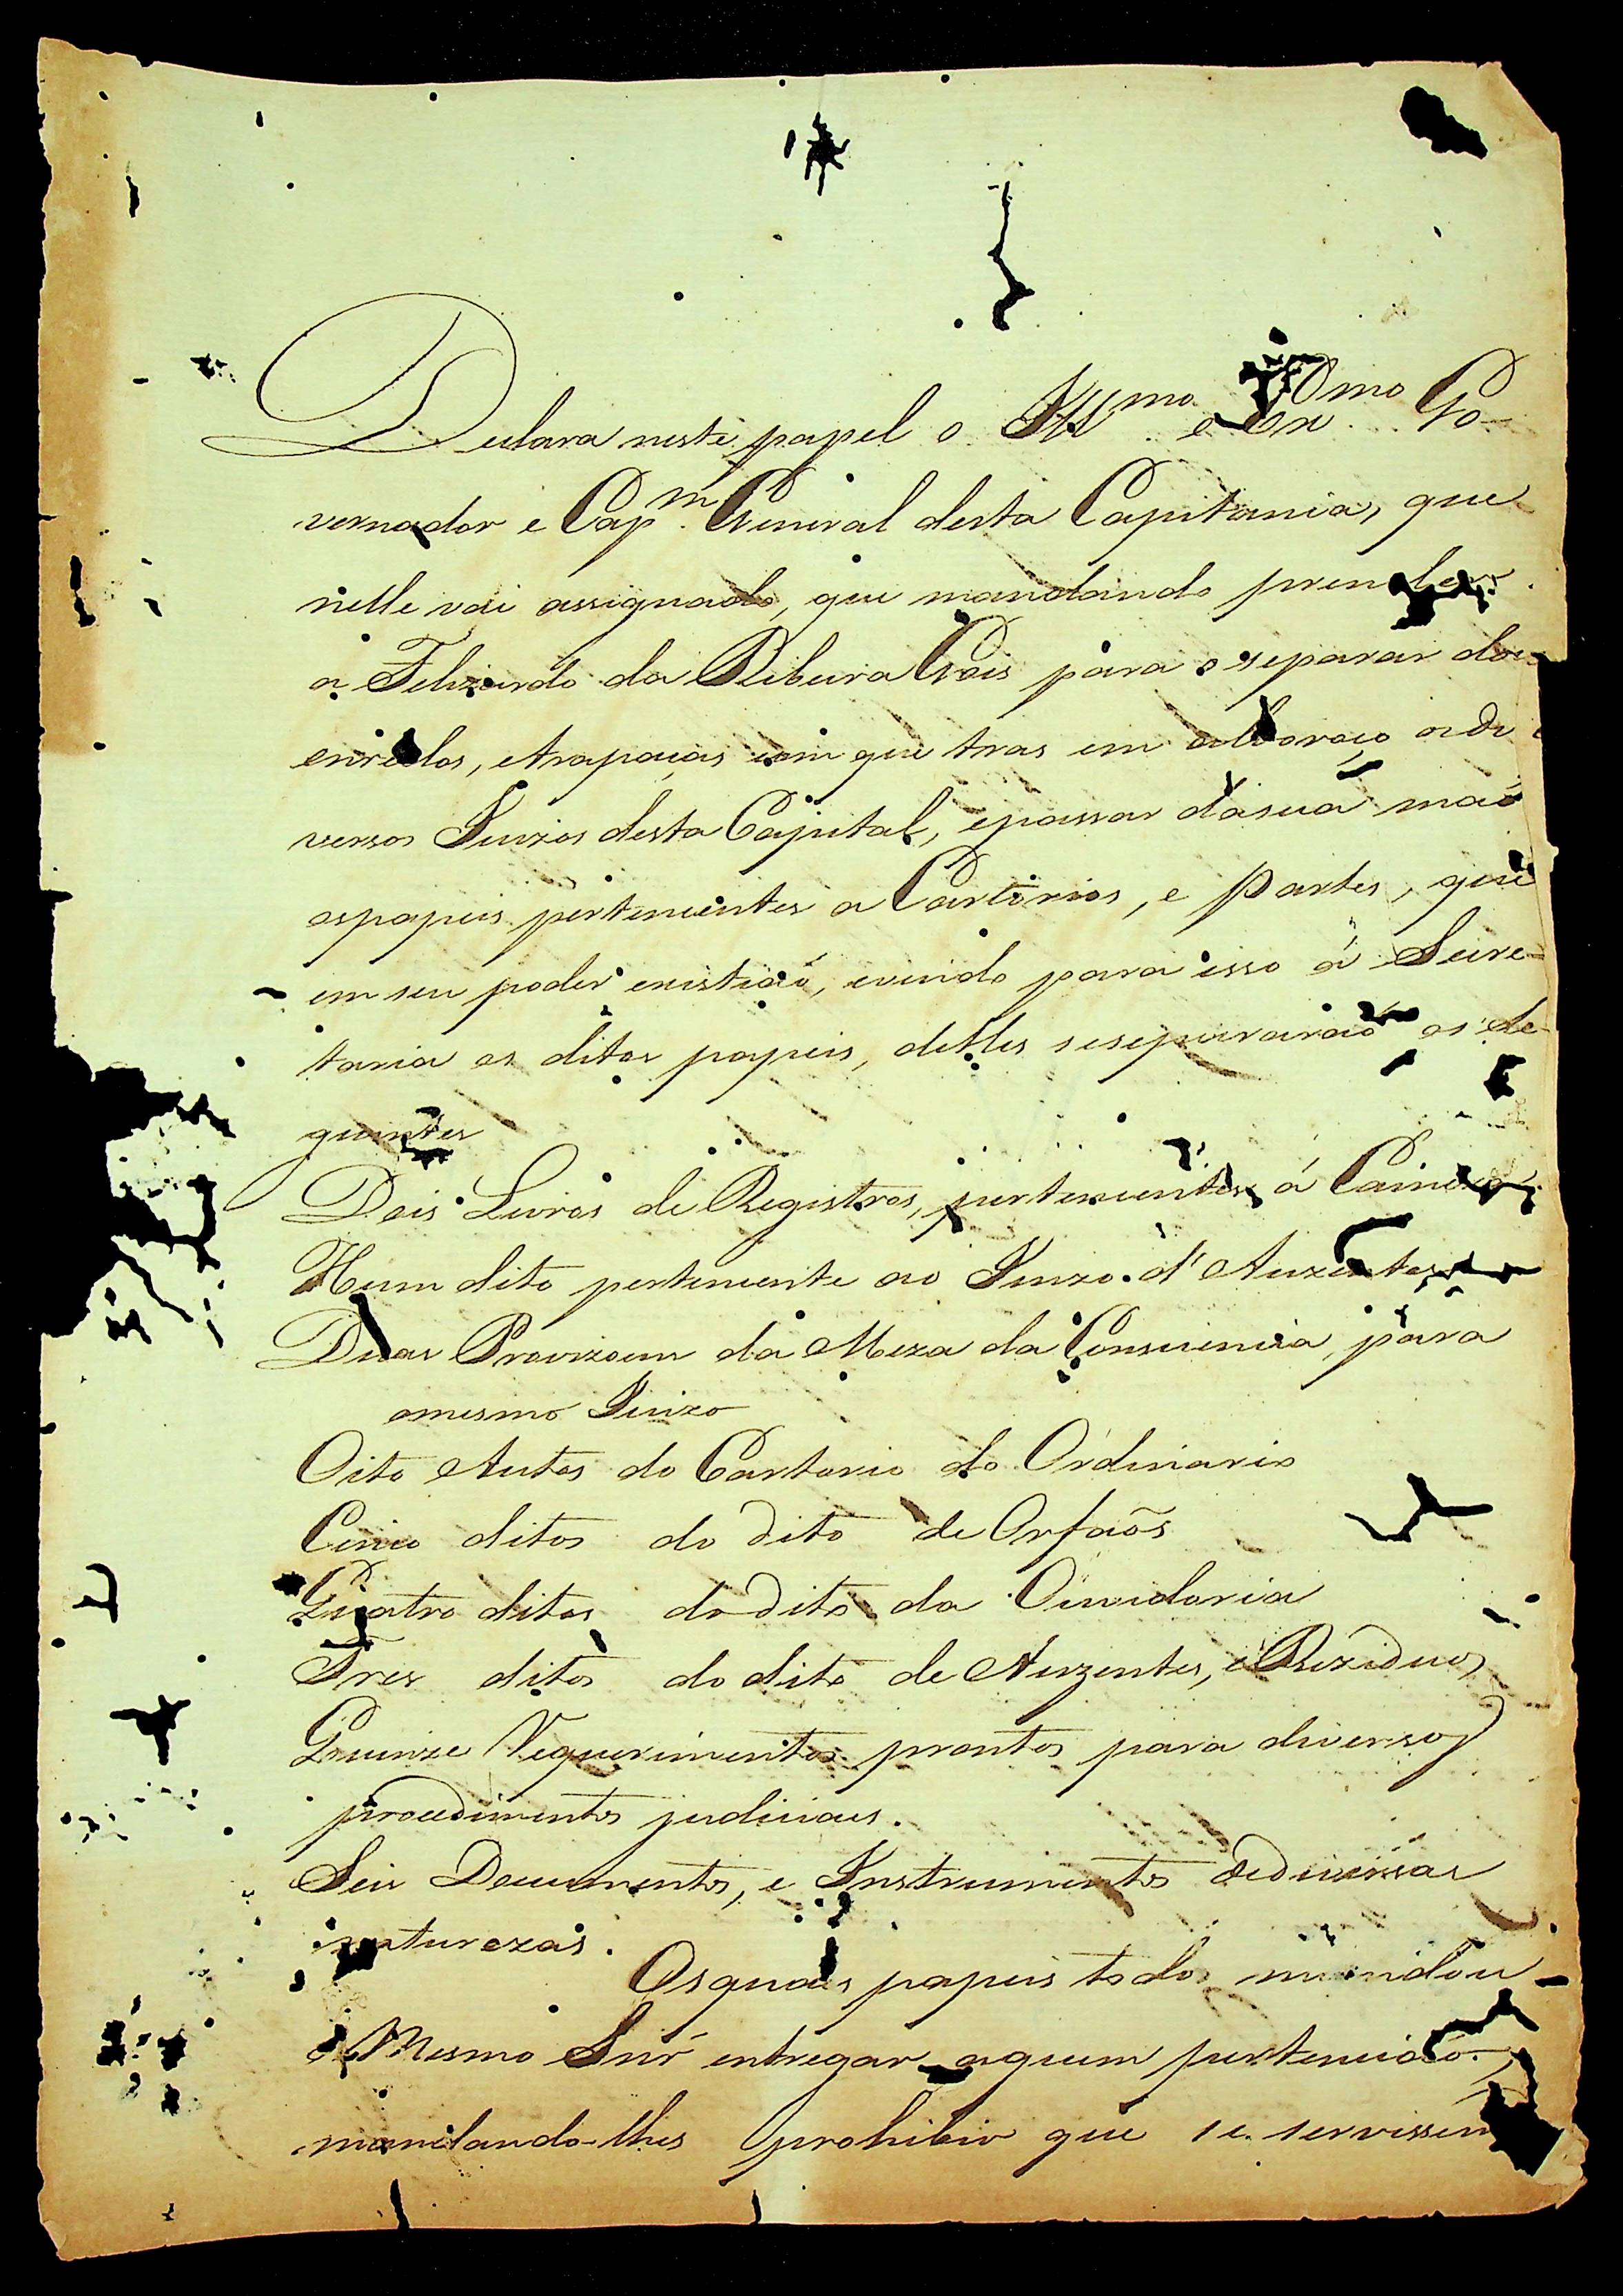 Declara neste papel o Ill.mo e Ex.mo Go-
vernador e Cap.m General desta Capitania, que
nelle vai assignado, que mandando prender
a Felizardo da Ribeira Goes para o separar dos
enredos, etrapaças com que tras em alvoraço os di
versos Juizos desta Capital, epassar dasua maõ
ospapeis pertencentes a Cartorios, e Partes, que
em seu poder existiaõ, evindo para isso á Secre-
taria os ditos papeis, delles seseparáraõ os se-
guintes
Dois Livros de Registros, pertencentes á Camera
Hum dito pertencente ao Juizo d'Auzentes
Duas Provizoens da Meza da Consciencia, para
omesmo Juizo
Oito Autos do Cartorio do Ordinario
Cinco ditos do dito de Orfaõs
Quatro ditos do dito da Ouvidoria
Tres ditos do dito de Auzentes, e Rezíduos
Quinze Requerimentos prontos para diversos
procedimentos judiciaes.
Seis Documentos, e Instrumentos dediversas
naturezas.
Osquaes papeis todos mandou
o Mesmo Snr̃ entregar aquem pertenciaõ,
mandando-lhes prohibir que se servissem